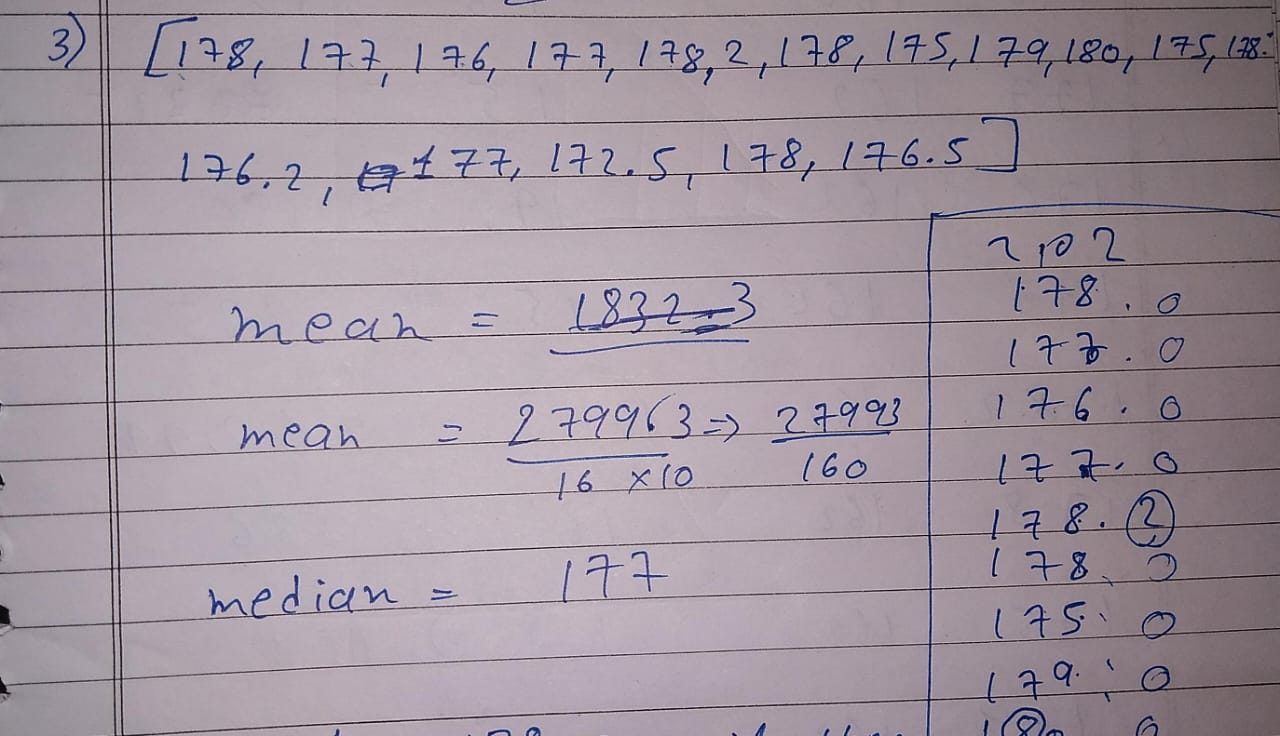 3) [178, 177, 176, 177, 178,2, 178, 175, 179, 180, 175, 178.
176.2, 177, 172.5, 178, 176.5]
mean = 1832.3
mean = 279963 => 27993
16 x 10 160
median = 177
2 10 2
178.0
177.0
176.0
177.0
178.2
178.0
175.0
179.0
180 0